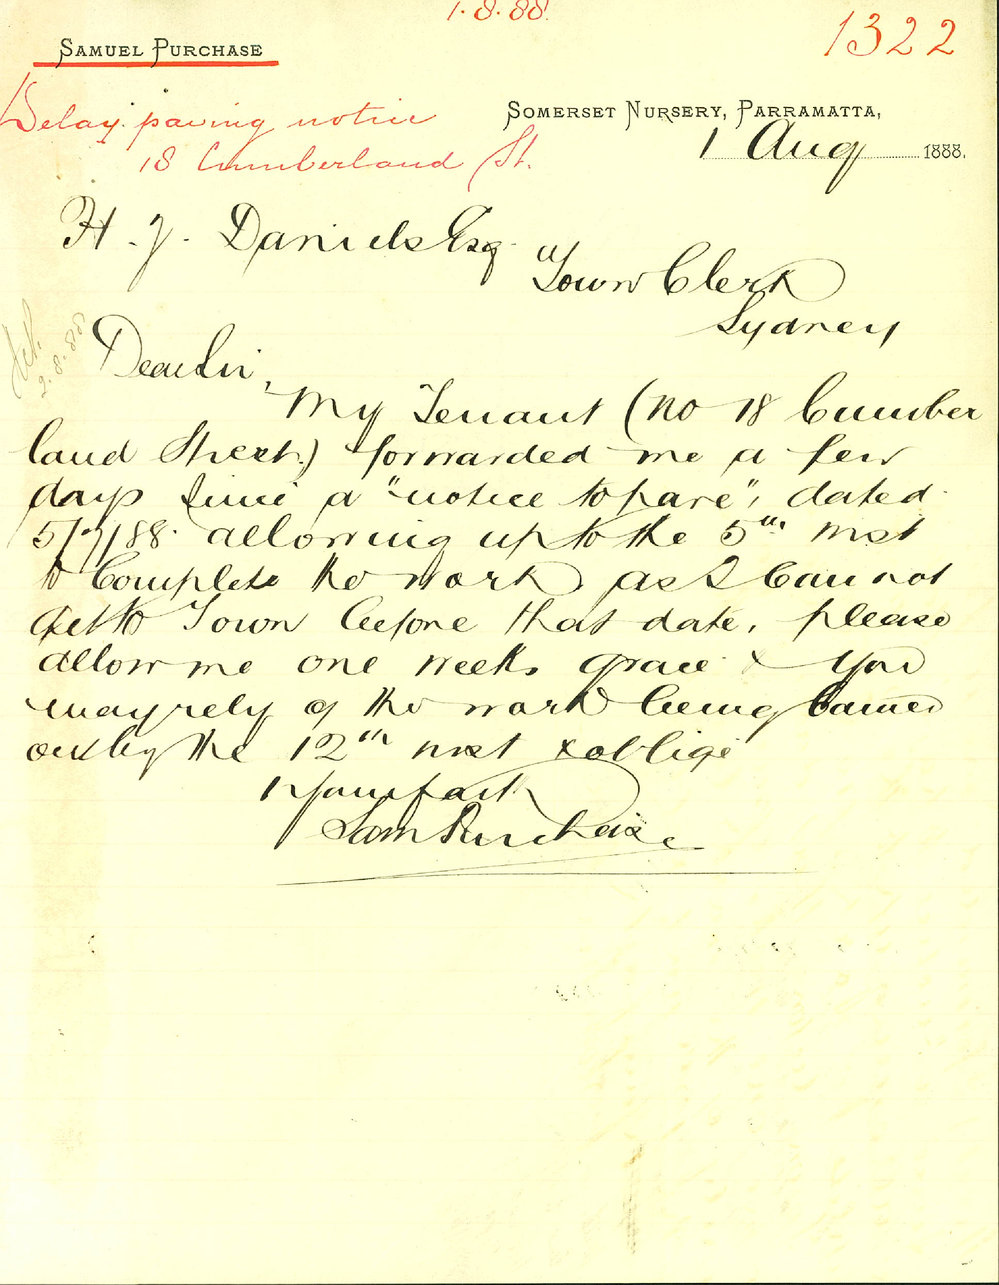 1.8.88.
1322
SAMUEL PURCHASE
SOMERSET NURSERY, PARRAMATTA,
Delay paving notice
18 Cumberland St.
1 Aug 1888.
H. J. Daniels Esq
Town Clerk
Sydney
2.8.88
Dear Sir,
My Tenant (No 18 Cumber
land Street.) forwarded me a few
days since a "notice to pave", dated
5/7/88. allowing up to the 5th inst
to Complete the work as I Cannot
get to Town before that date, please
allow me one weeks grace & you
may rely of the work being Carried
out by the 12th inst & oblige
Yours faith
Sam Purchase